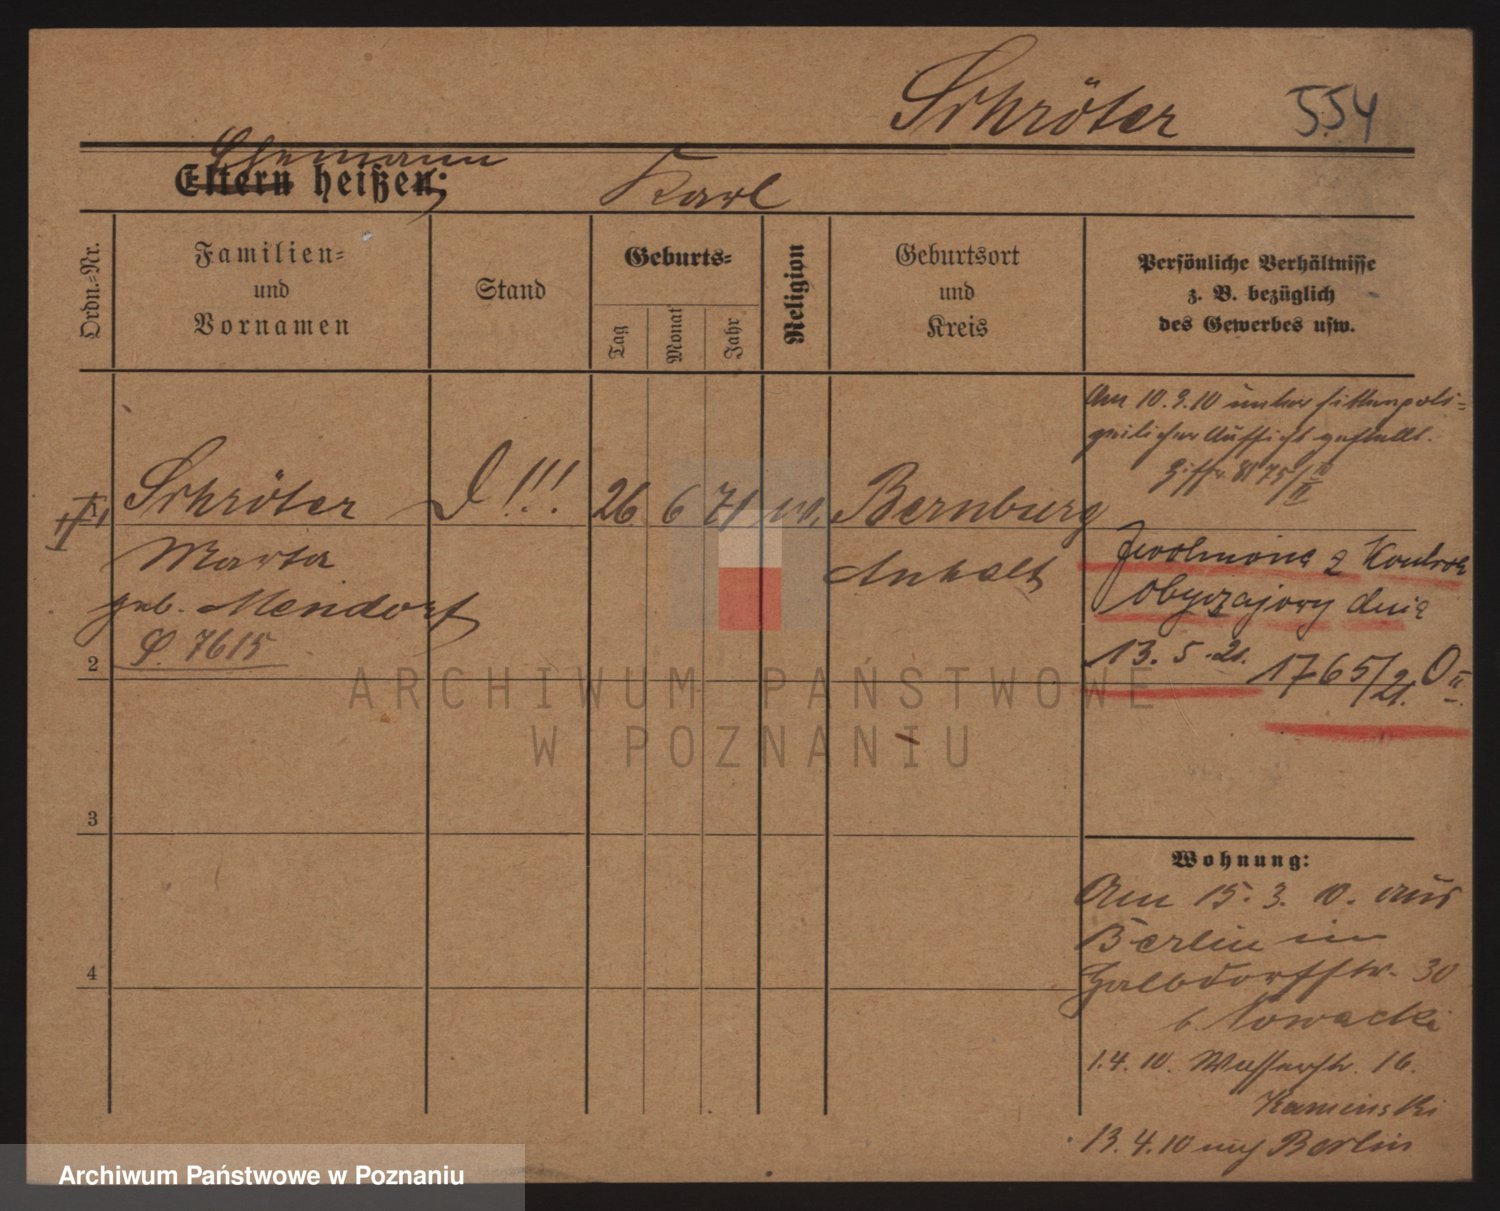 Schröter 554
Ehemann
Eltern heißen: Karl
Ordn.-Nr.
Familien-
und
Vornamen
Stand
Geburts-
Tag
Monat
Jahr
Religion
Geburtsort
und
Kreis
Persönliche Verhältnisse
z. B. bezüglich
des Gewerbes usw.
Am 10.3.10 unter sittenpoli-
zeilicher Aufsicht gestellt.
Schröter D!!! 26 6 71 Bernburg
Marta Anhalt
geb. Mendorf
7615
Zwolniona z Kontroli
obyczajowy dnia
13. 5. 21. 1765/21. O II.
2
3
4
Wohnung:
Am 15. 3. 10. aus
Berlin in
Halbdorfstr. 30
b. Nowacki
1.4.10. Wasserstr. 16.
Kaminski
13.4.10 nach Berlin
ARCHIWUM PAŃSTWOWE
W POZNANIU
Archiwum Państwowe w Poznaniu